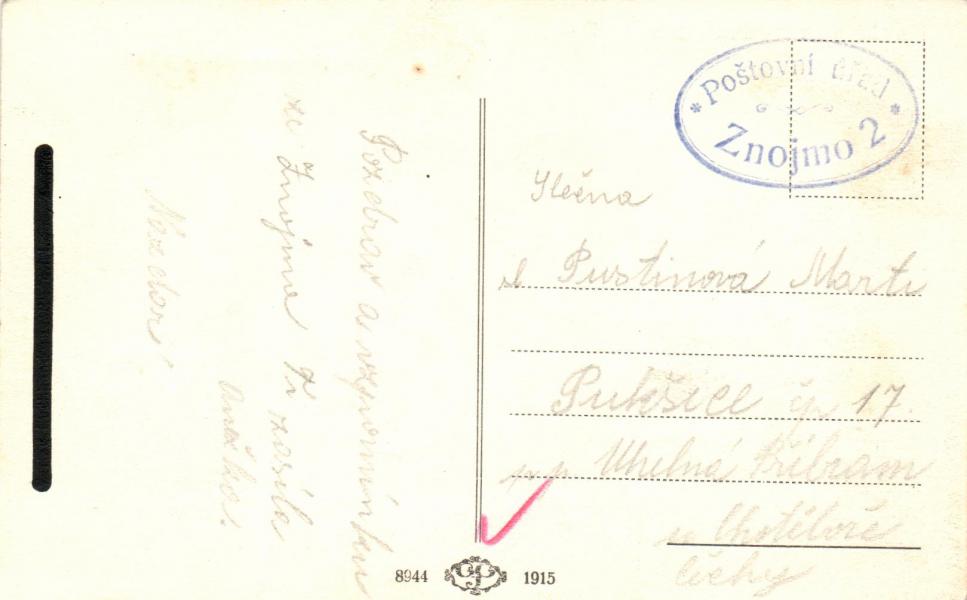 Pozdrav a vzpomínku
ze Znojma Ti zasílá
Anežka.
Nazdar!
* Poštovní úřad *
Znojmo 2
Slečna
Pustinová Marti
Pukšice čp 17.
p.p. Uhelná Příbram
u Chotěboře
Čechy
8944 1915